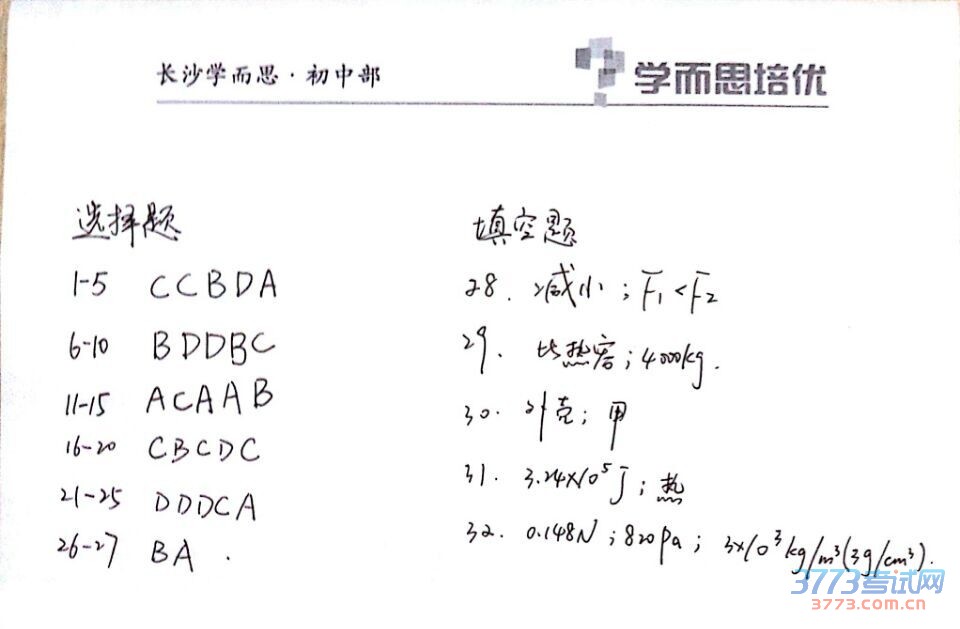 长沙学而思·初中部
学而思培优
选择题
1-5 CCBDA
6-10 BDDBC
11-15 ACAAB
16-20 CBCDC
21-25 DDDCA
26-27 BA.
填空题
28. 减小；F₁<F₂
29. 比热容；4000kg.
30. 外壳；甲
31. 3.24×10⁵J；热
32. 0.148N；820pa；3×10³kg/m³(3g/cm³).
3773考试网
3773.com.cn